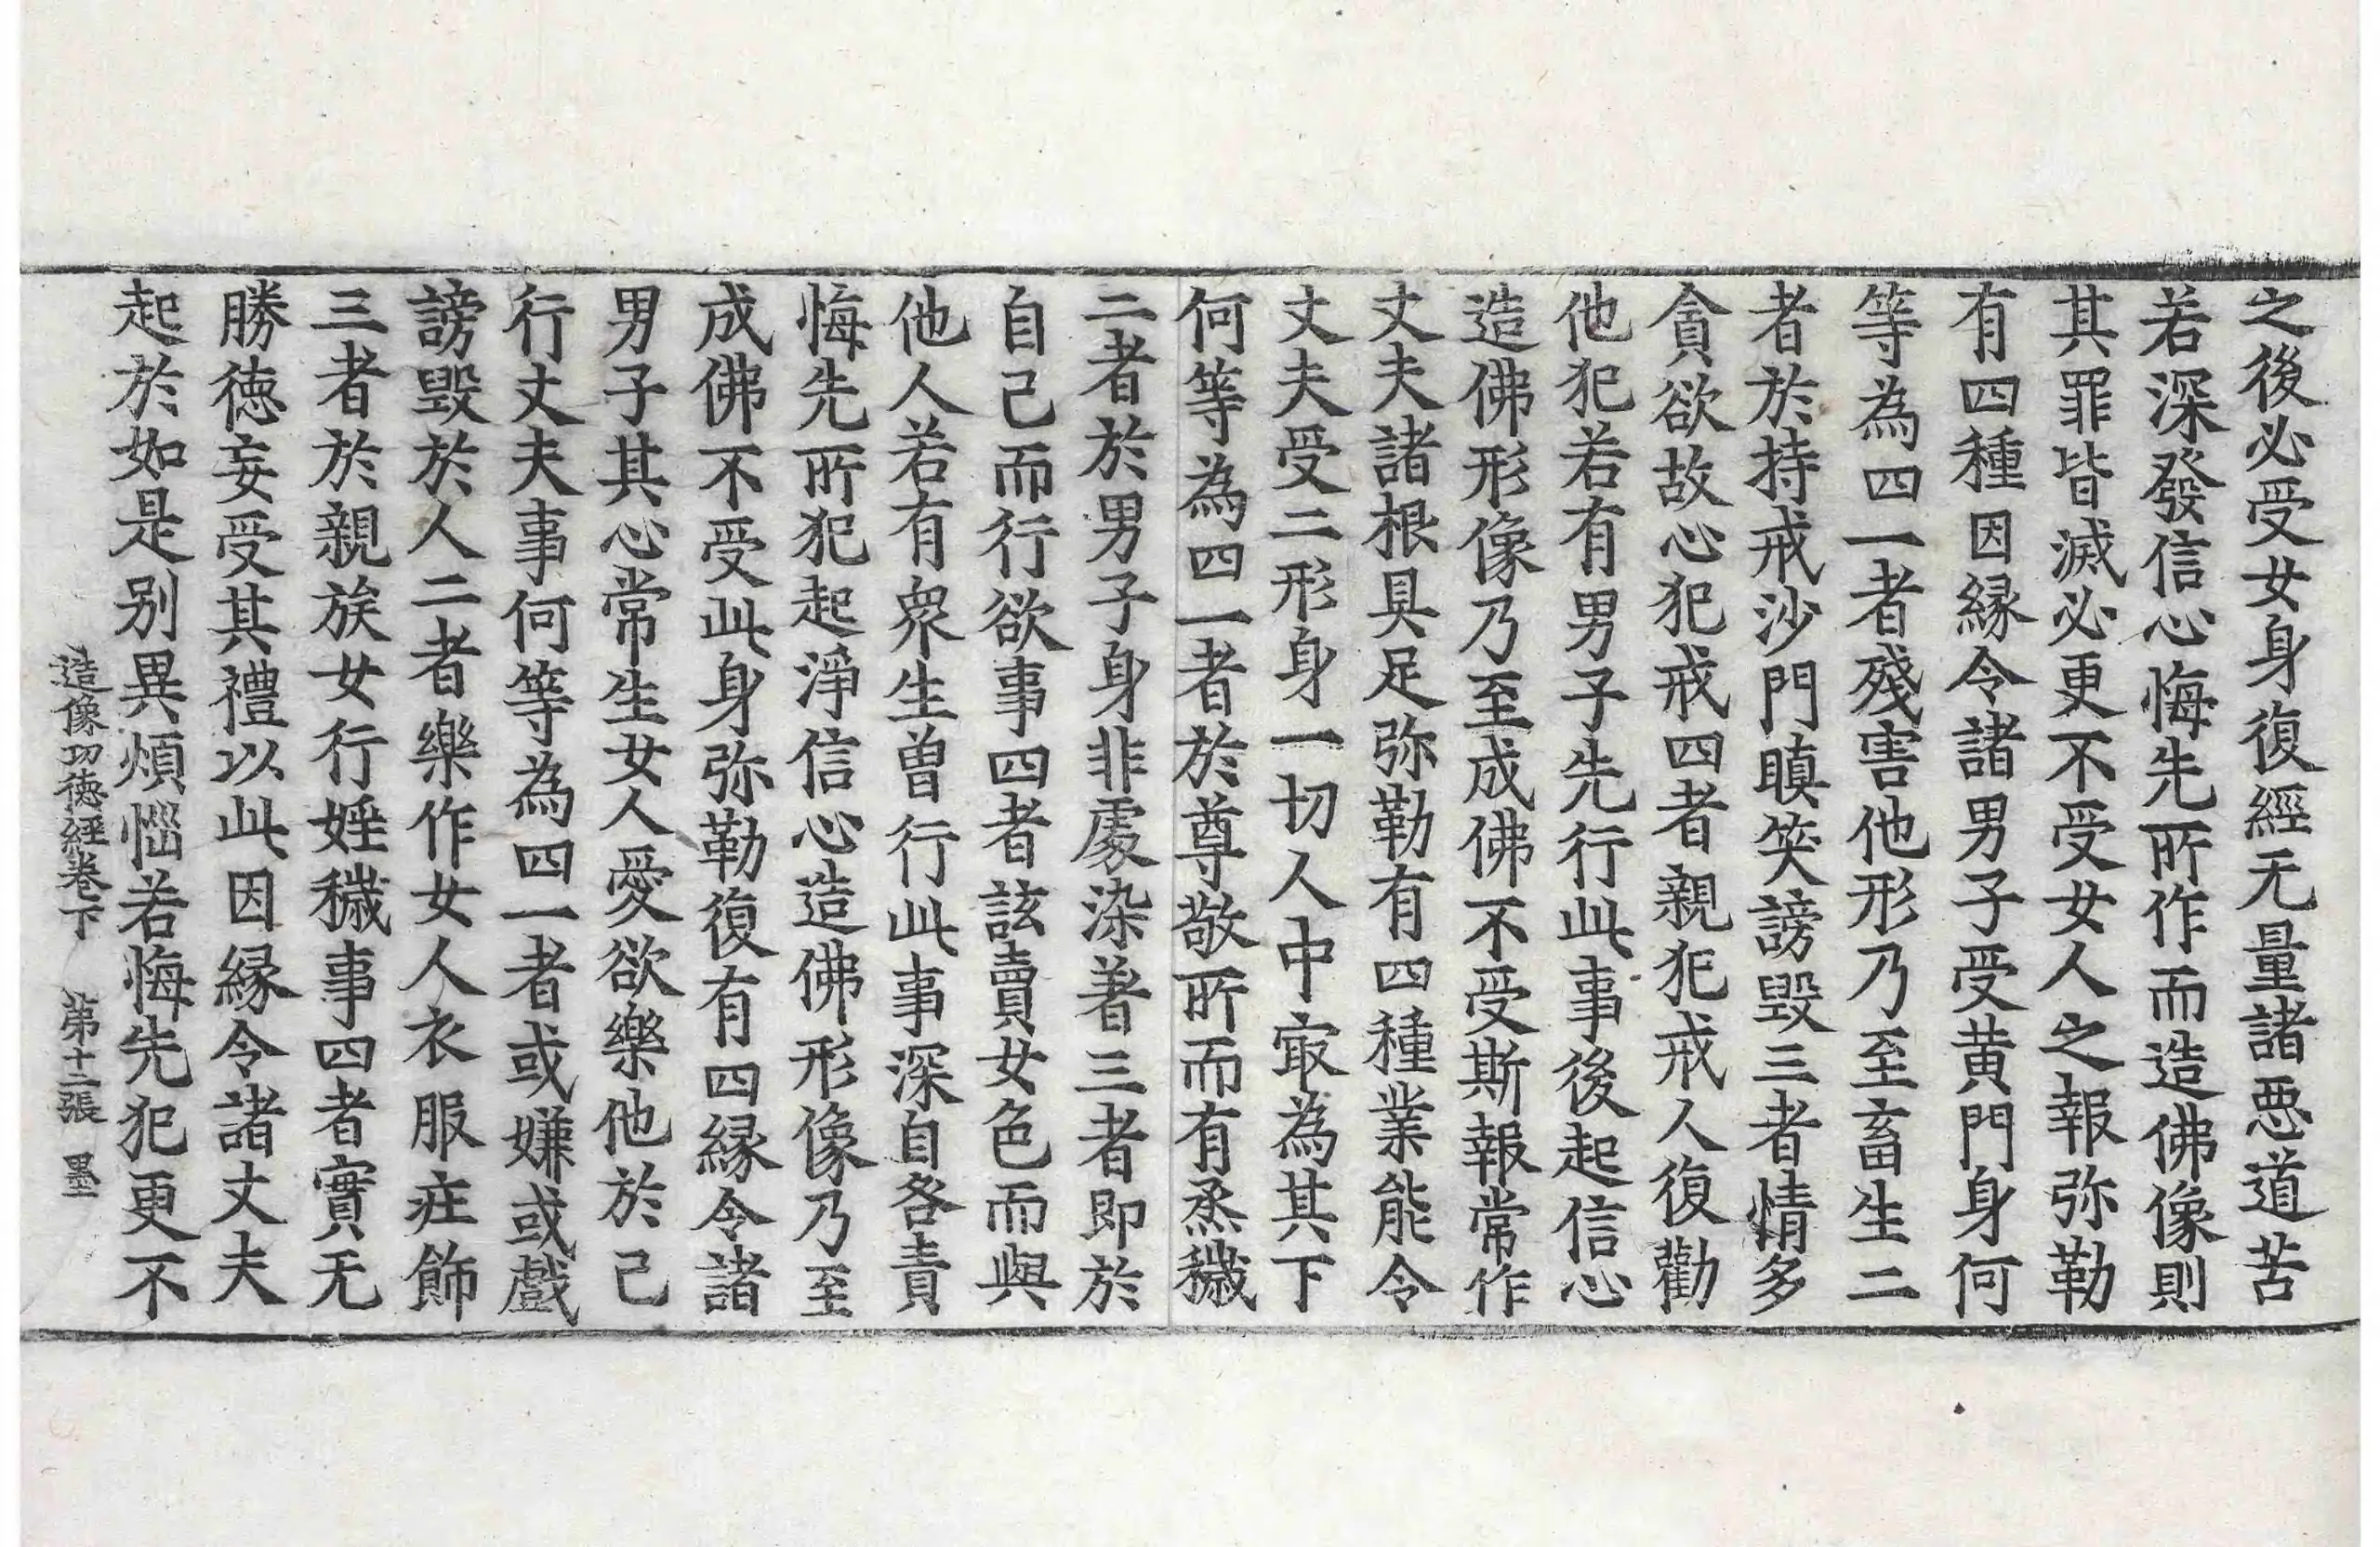 之後必受女身復經无量諸惡道苦
若深發信心悔先所作而造佛像則
其罪皆滅必更不受女人之報弥勒
有四種因緣令諸男子受黃門身何
等為四一者殘害他形乃至畜生二
者於持戒沙門瞋笑謗毀三者情多
貪欲故心犯戒四者親犯戒人復勸
他犯若有男子先行此事後起信心
造佛形像乃至成佛不受斯報常作
丈夫諸根具足弥勒有四種業能令
丈夫受二形身一切人中㝡為其下
何等為四一者於尊敬所而有烝穢
二者於男子身非處染著三者即於
自己而行欲事四者詃賣女色而與
他人若有衆生曾行此事深自咎責
悔先所犯起淨信心造佛形像乃至
成佛不受此身弥勒復有四緣令諸
男子其心常生女人愛欲樂他於己
行丈夫事何等為四一者或嫌或戲
謗毀於人二者樂作女人衣服庄飾
三者於親族女行婬穢事四者實无
勝德妄受其禮以此因緣令諸丈夫
起於如是別異煩惱若悔先犯更不
造像功德經卷下 第十二張 墨